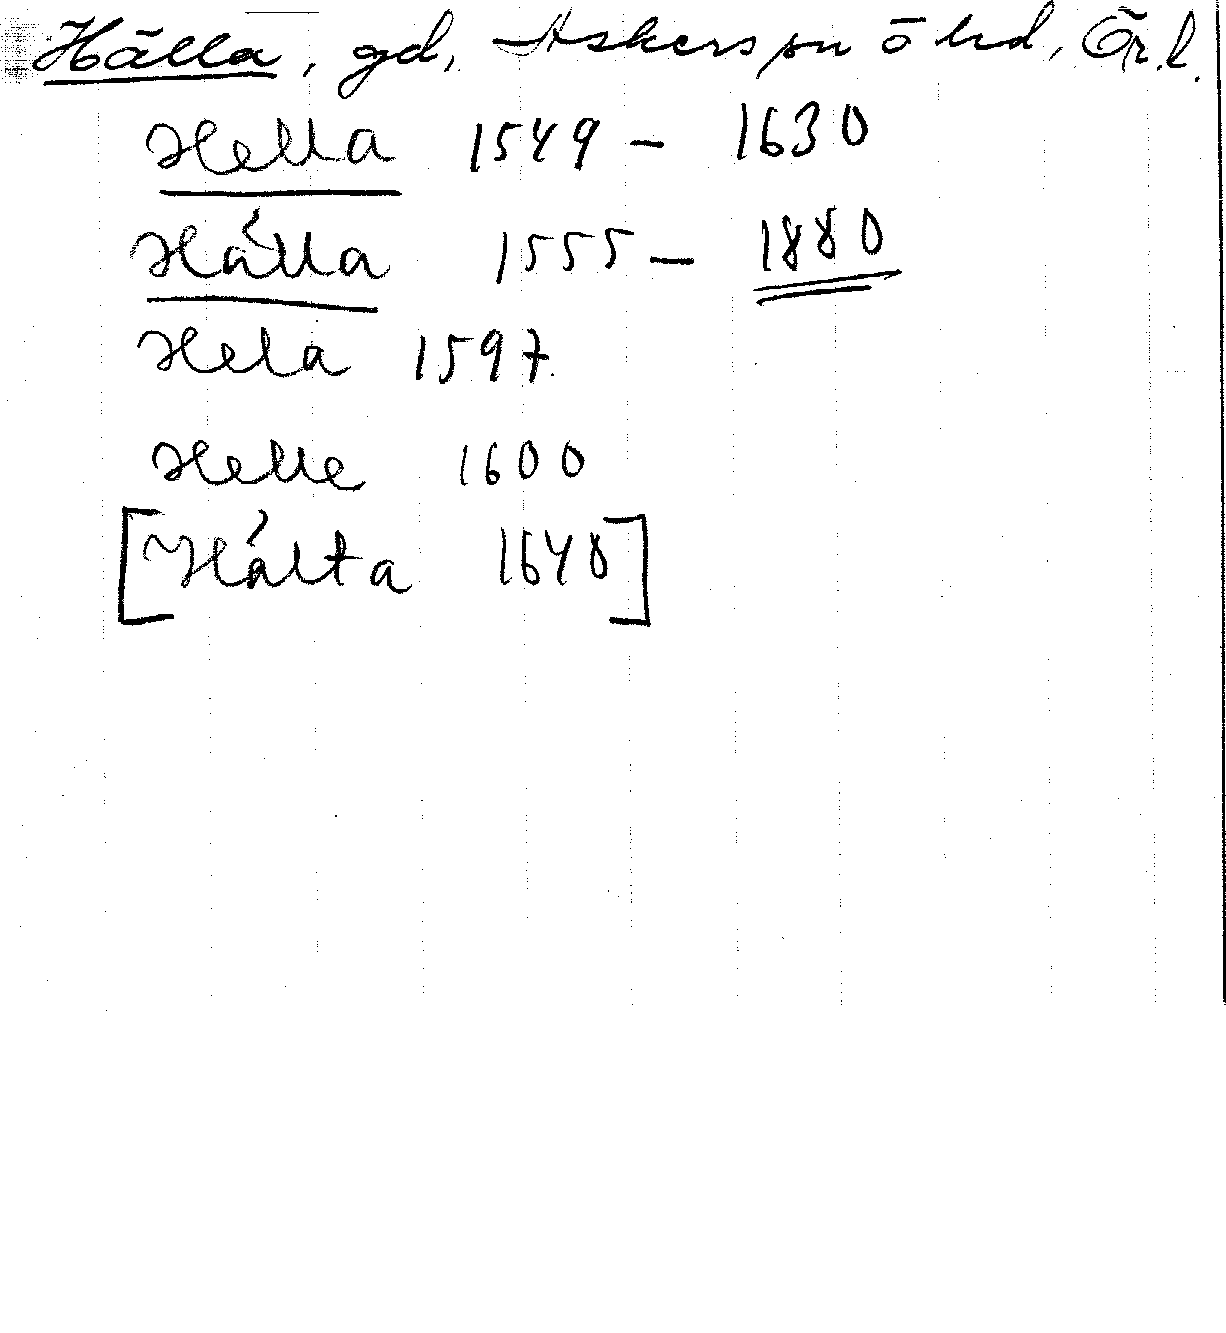 Hälla, gd, Askers sn ö hd, Ör.l.
Hella 1549 – 1630
Hälla 1555 – 1880
Hela 1597
Helle 1600
[Hälta 1640]